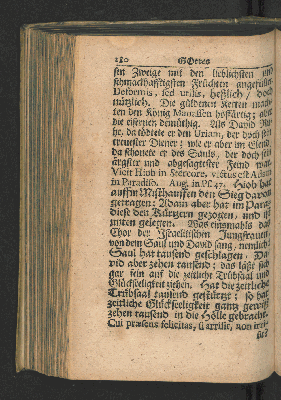 180 GOttes
sen Zweige mit den lieblichsten und
schmackhafftigsten Früchten angefüllet.
Deformis, sed utilis, heßlich / doch
nützlich. Die güldenen Ketten mach-
ten den König Manassen hoffärtig; aber
die eisernen demüthig. Als David Ru-
he, da tödtete er den Uriam, der doch sein
treuester Diener: wie er aber im Elend,
da schonete er des Sauls, der doch sein
ärgster und abgesagtester Feind war.
Vicit Hiob in stercore, victus est Adam
in Paradiso. Aug. in Ps. 47. Hiob hat
auffm Misthauffen den Sieg davon
getragen: Adam aber hat im Para-
dieß den Kürtzern gezogen, und ist
unten gelegen. Was einsmahls das
Chor der Israelitischen Jungfrauen
von dem Saul und David sang, nemlich:
Saul hat tausend geschlagen, Da-
vid aber zehen tausend: das läßt sich
gar fein auf die zeitliche Trübsaal und
Glückseeligkeit ziehen. Hat die zeitliche
Trübsaal tausend gestürtzt; so hat
zeitliche Glückseeligkeit gantz gewiß
zehen tausend in die Hölle gebracht.
Qui præsens felicitas, si arrisit, non irri-